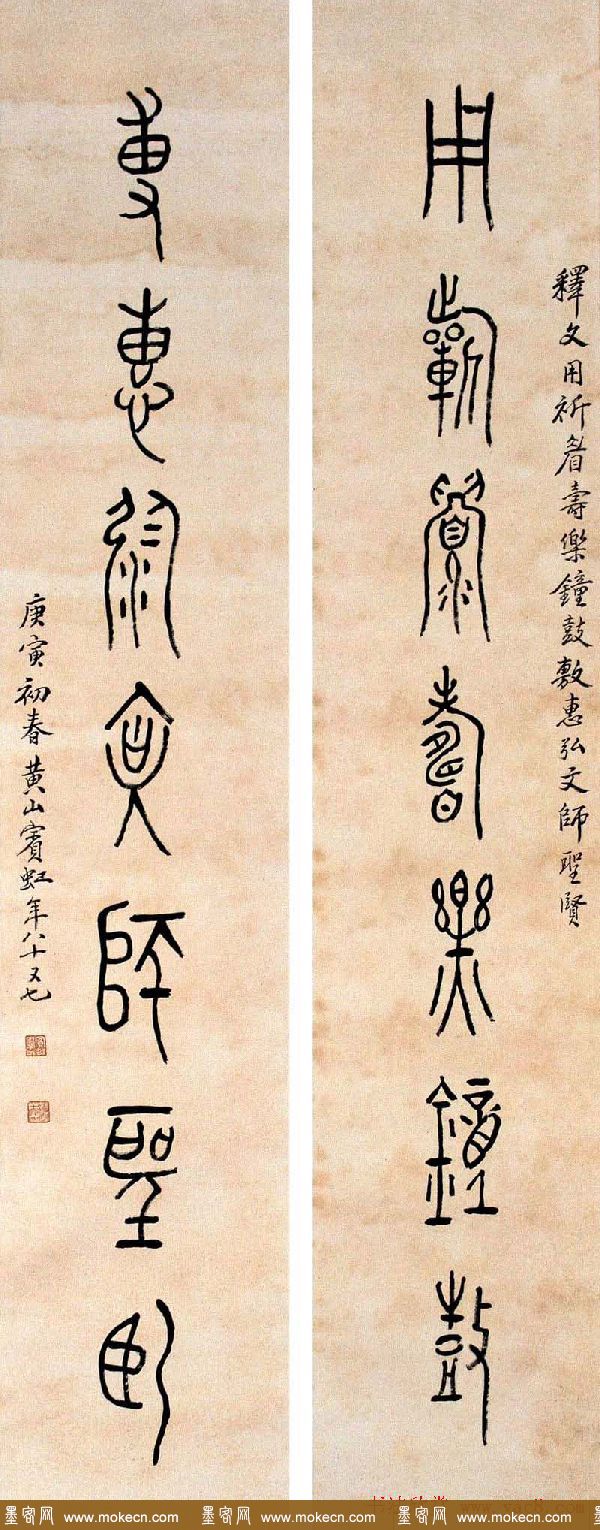 釋文用祈眉壽樂鐘鼓敷惠弘文師聖賢
用祈眉壽樂鐘鼓
敷惠弘文師聖賢
庚寅初春黃山賓虹年八十又七
墨客网 www.mokecn.com 墨客网 www.mokecn.com 墨客网 www.mokecn.com